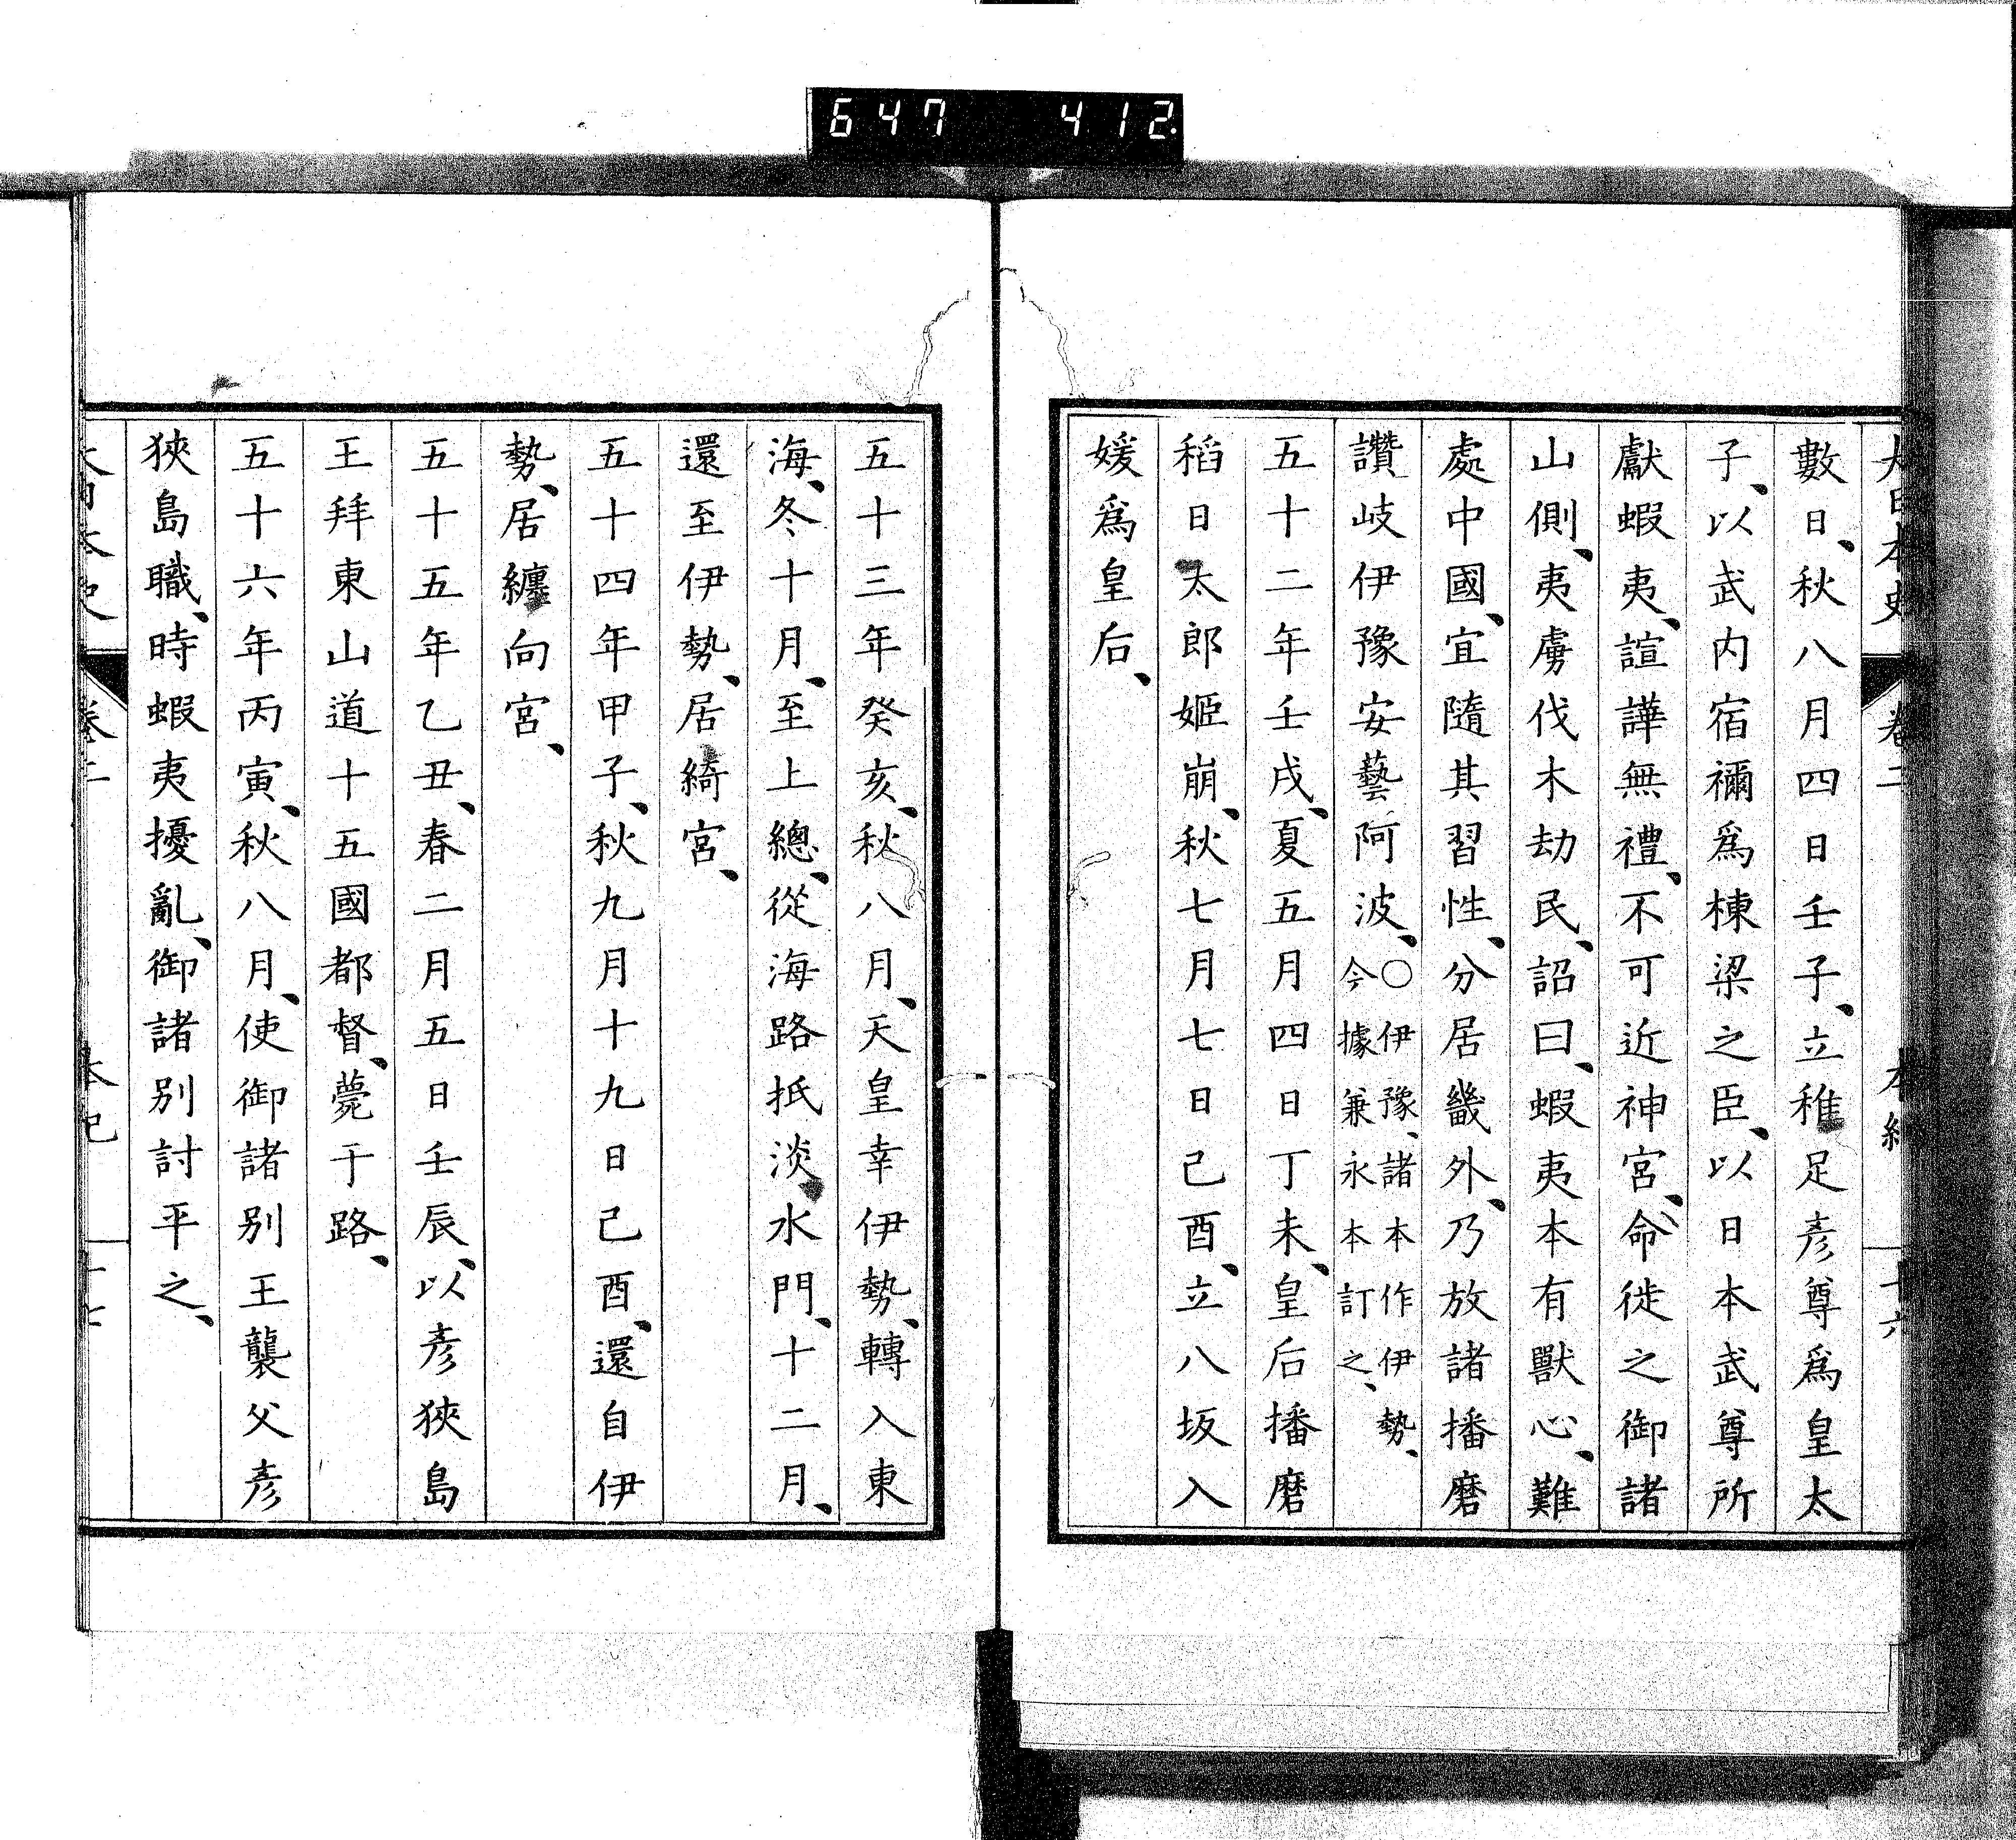 647 412
大日本史 卷二 本紀 十六
數日、秋八月四日壬子、立稚足彦尊爲皇太
子、以武内宿禰爲棟梁之臣、以日本武尊所
獻蝦夷、諠譁無禮、不可近神宮、命徙之御諸
山側、夷虜伐木劫民、詔曰、蝦夷本有獸心、難
處中國、宜隨其習性、分居畿外、乃放諸播磨
讚岐伊豫安藝阿波、〇伊豫、諸本作伊勢、
今據兼永本訂之、
五十二年壬戌、夏五月四日丁未、皇后播磨
稻日太郎姬崩、秋七月七日己酉、立八坂入
媛爲皇后、
五十三年癸亥、秋八月、天皇幸伊勢、轉入東
海、冬十月、至上總、從海路抵淡水門、十二月、
還至伊勢、居綺宮、
五十四年甲子、秋九月十九日己酉、還自伊
勢、居纏向宮、
五十五年乙丑、春二月五日壬辰、以彦狹島
王拜東山道十五國都督、薨于路、
五十六年丙寅、秋八月、使御諸別王襲父彦
狹島職、時蝦夷擾亂、御諸別討平之、
大日本史 卷二 本紀 十七